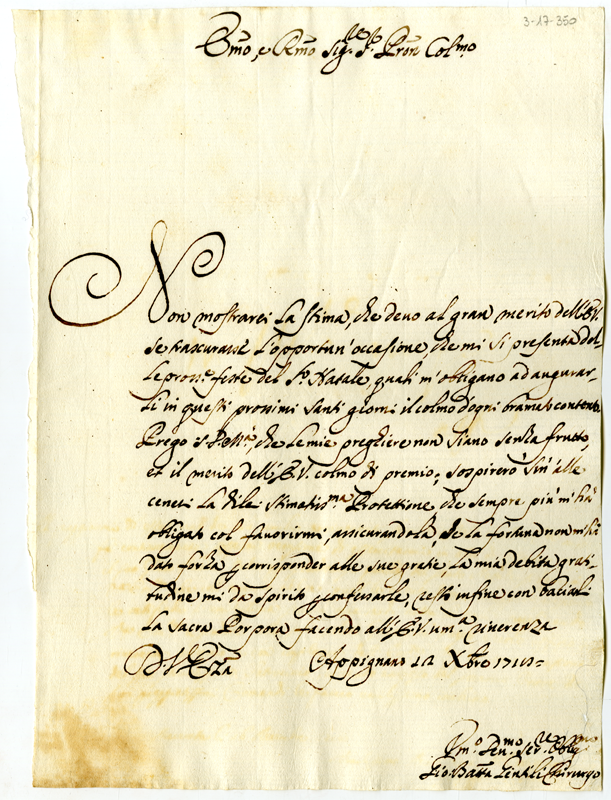 3-17-350
Emo, e Rmo Sig.re Sr. Pron Colmo
Non mostrarei la stima, che devo al gran merito dell'E.V.
se trascurassi l'opportun'occasione, che mi si presenta dal-
le pross.e feste del S.o Natale, quali m'obligano ad augurar-
li in questi prossimi santi giorni il colmo d'ogni bramato contento.
Prego che le mie preghiere non siano senza frutto,
et il merito dell'E.V. colmo di premio; sospirerò sin' alle
ceneri la di lei stimatis.ma Protettione, che sempre più m'hà
obligato col favorirmi, assicurandola, che la fortuna non m'hà
dato forza p corrisponder alle sue gratie, la mia debita grati-
tudine mi da spirito p confessarle, resto infine con baciarli
la sacra Porpora facendo all'E.V. um.a riverenza
D V Eza Appignano 12 Xbro
Um.o Dev.mo Ser.re Obligmo
Gio: Batta Gentili Chirurgo